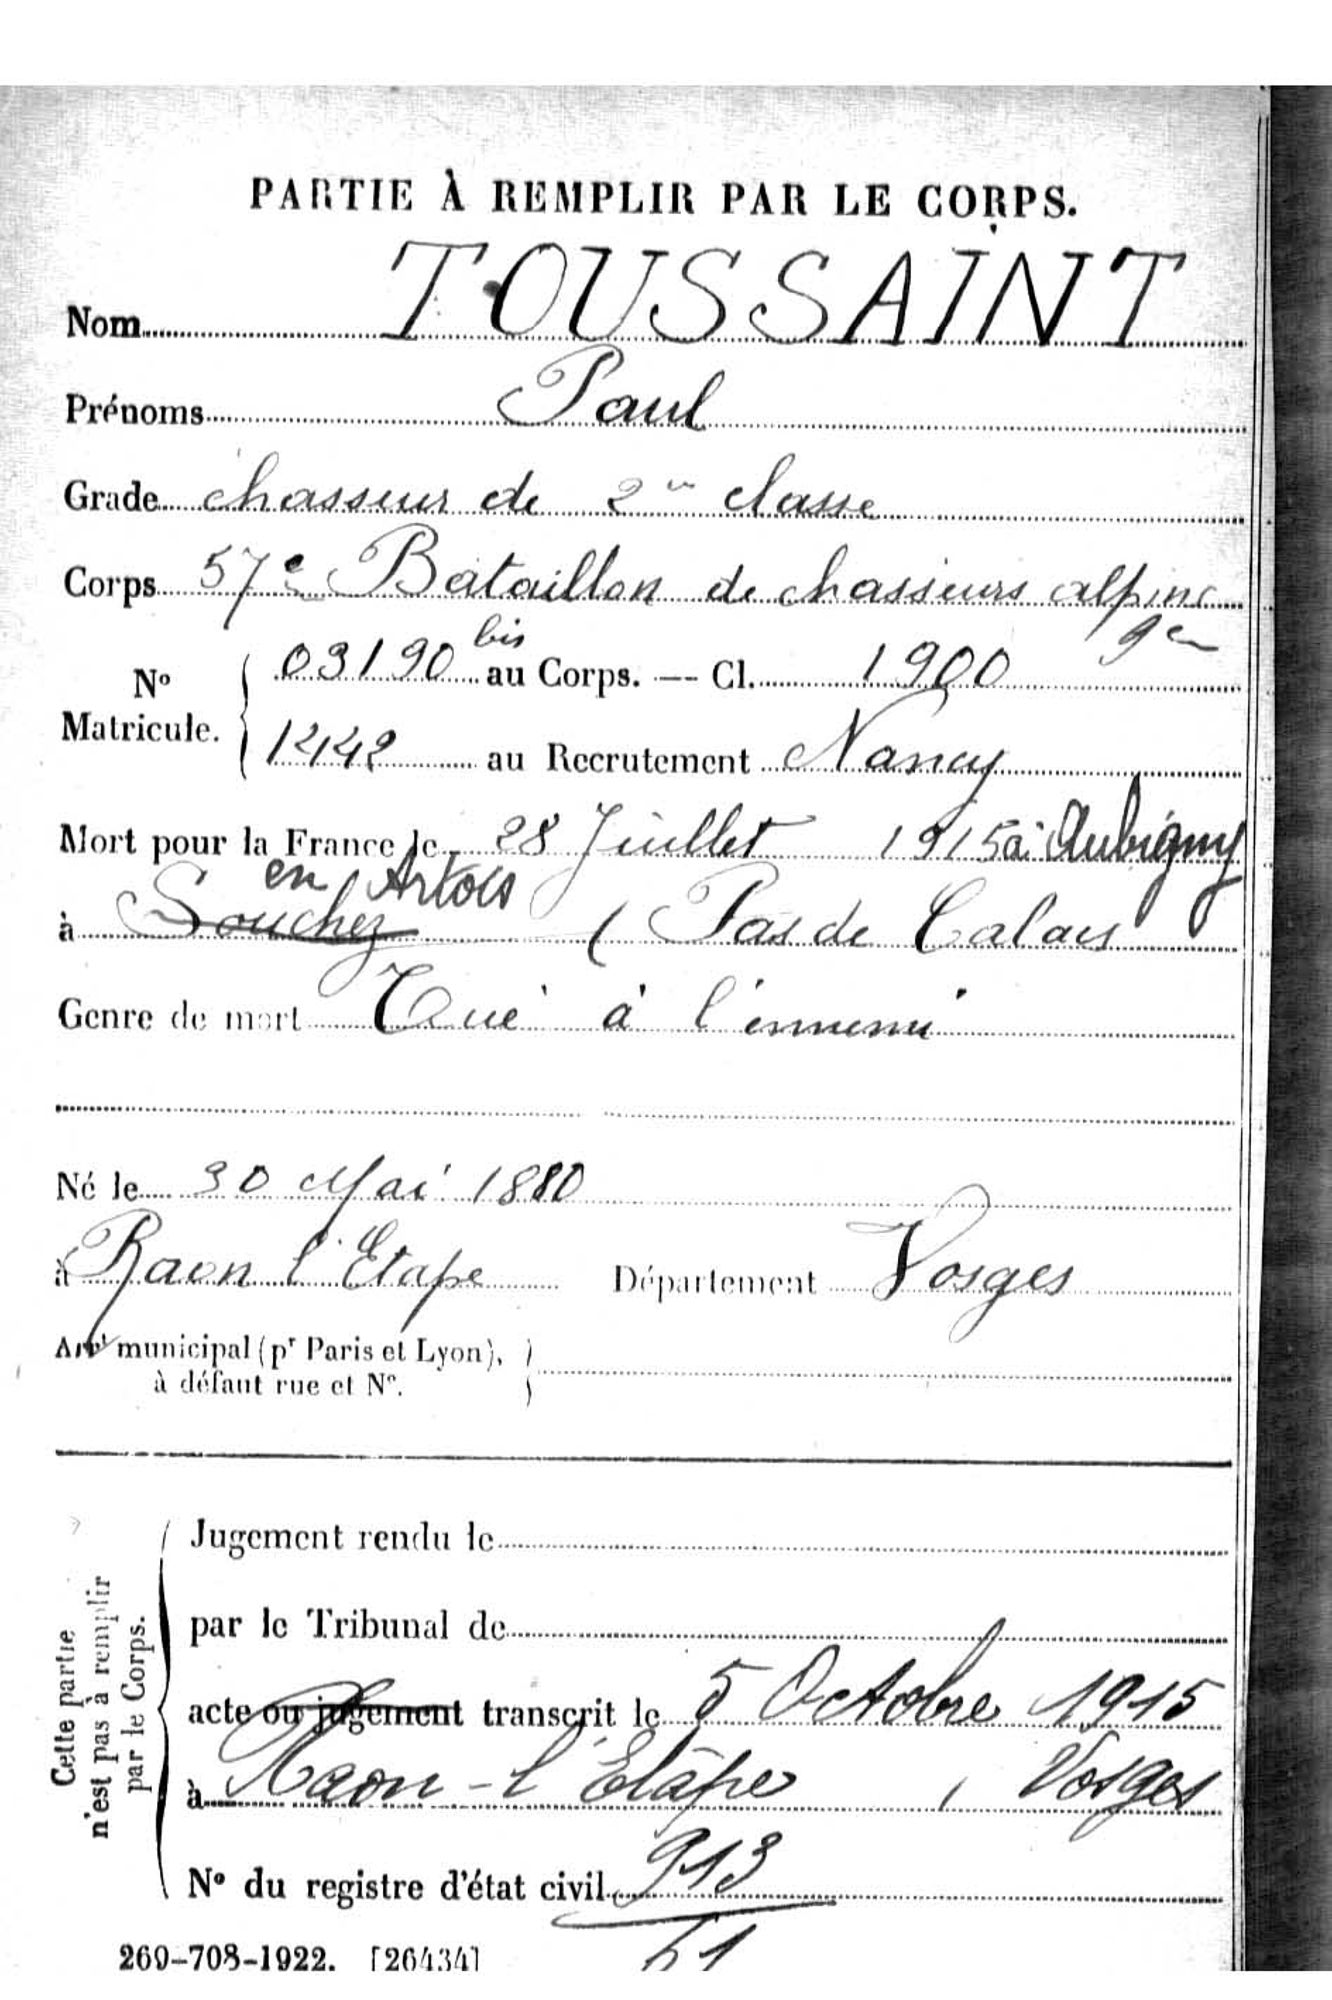 PARTIE À REMPLIR PAR LE CORPS.
Nom TOUSSAINT
Prénoms Paul
Grade chasseur de 2me classe
Corps 57e Bataillon de chasseurs alpins
No Matricule. 03190 bis au Corps. — Cl. 1900
1442 au Recrutement Nancy
Mort pour la France le 28 Juillet 1915 à Aubigny
en Artois
à Souchez ( Pas de Calais
Genre de mort Tué à l'ennemi
Né le 30 Mai 1880
à Raon l'Etape Département Vosges
Arrt municipal (pr Paris et Lyon),
à défaut rue et No.
Cette partie
n'est pas à remplir
par le Corps.
Jugement rendu le
par le Tribunal de
acte ou jugement transcrit le 5 Octobre 1915
à Raon-l'Etape, Vosges
No du registre d'état civil 913
269-708-1922. [26434]